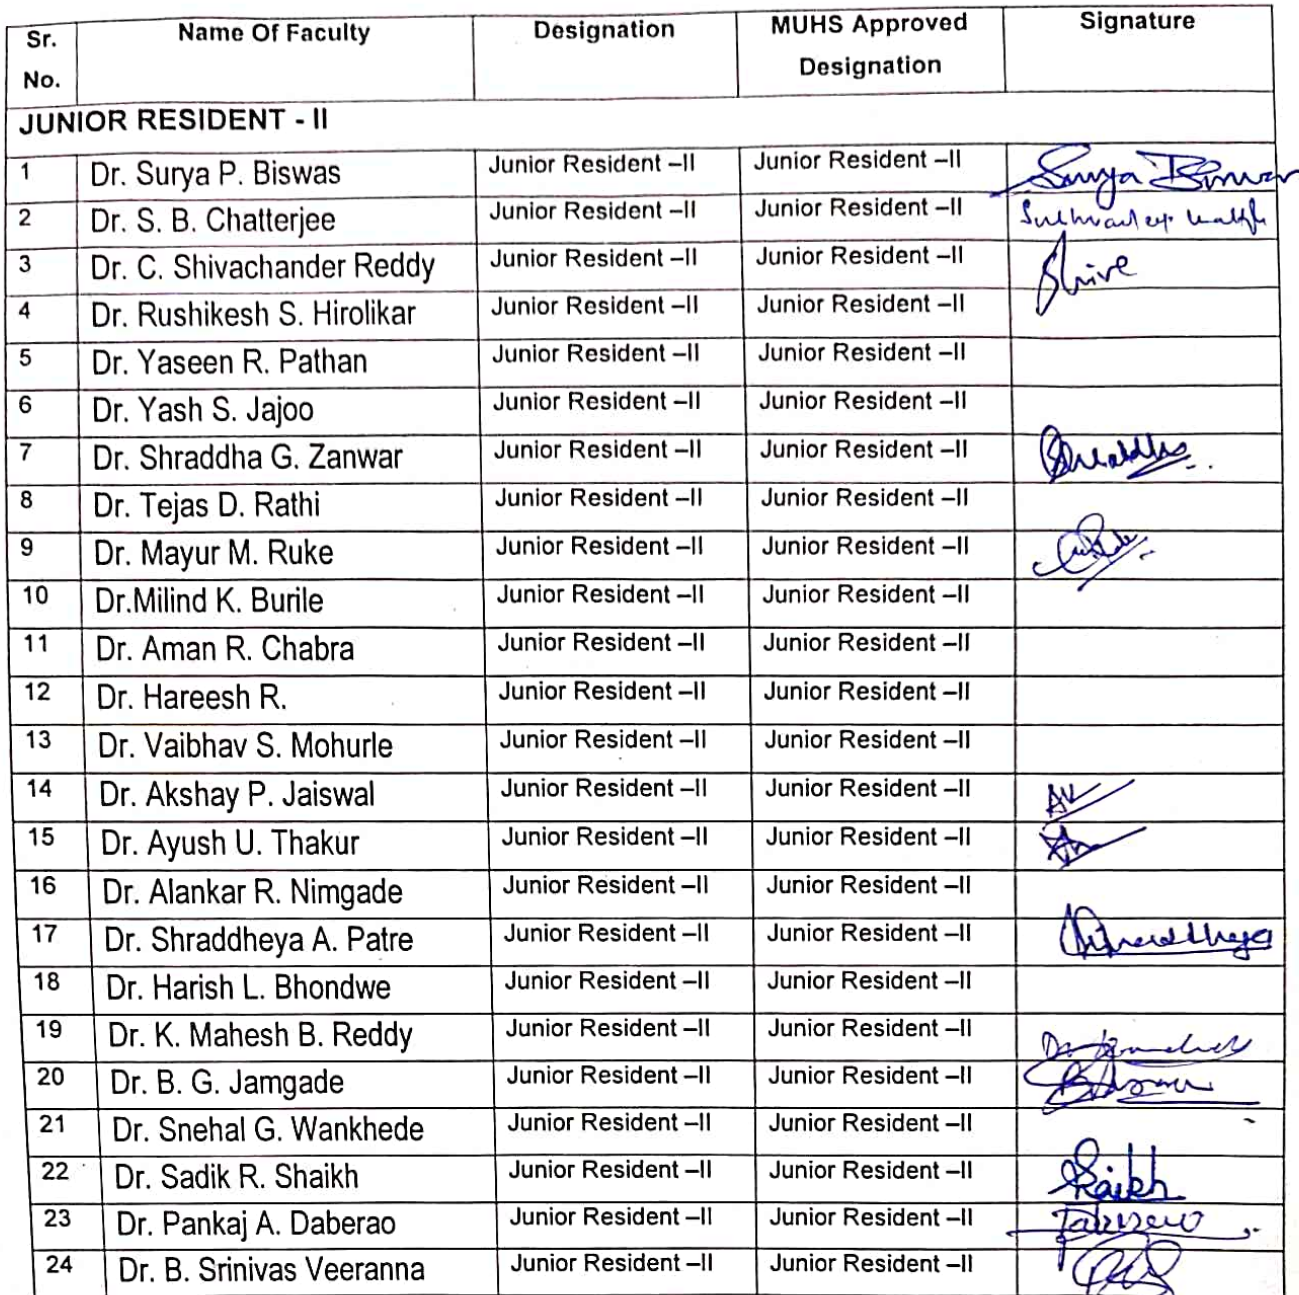 Sr. No. Name Of Faculty Designation MUHS Approved Designation Signature
JUNIOR RESIDENT - II
1 Dr. Surya P. Biswas Junior Resident –II Junior Resident –II Surya Biswas
2 Dr. S. B. Chatterjee Junior Resident –II Junior Resident –II
3 Dr. C. Shivachander Reddy Junior Resident –II Junior Resident –II Shive
4 Dr. Rushikesh S. Hirolikar Junior Resident –II Junior Resident –II
5 Dr. Yaseen R. Pathan Junior Resident –II Junior Resident –II
6 Dr. Yash S. Jajoo Junior Resident –II Junior Resident –II
7 Dr. Shraddha G. Zanwar Junior Resident –II Junior Resident –II Shraddha
8 Dr. Tejas D. Rathi Junior Resident –II Junior Resident –II
9 Dr. Mayur M. Ruke Junior Resident –II Junior Resident –II
10 Dr.Milind K. Burile Junior Resident –II Junior Resident –II
11 Dr. Aman R. Chabra Junior Resident –II Junior Resident –II
12 Dr. Hareesh R. Junior Resident –II Junior Resident –II
13 Dr. Vaibhav S. Mohurle Junior Resident –II Junior Resident –II
14 Dr. Akshay P. Jaiswal Junior Resident –II Junior Resident –II
15 Dr. Ayush U. Thakur Junior Resident –II Junior Resident –II
16 Dr. Alankar R. Nimgade Junior Resident –II Junior Resident –II
17 Dr. Shraddheya A. Patre Junior Resident –II Junior Resident –II Shraddheya
18 Dr. Harish L. Bhondwe Junior Resident –II Junior Resident –II
19 Dr. K. Mahesh B. Reddy Junior Resident –II Junior Resident –II
20 Dr. B. G. Jamgade Junior Resident –II Junior Resident –II
21 Dr. Snehal G. Wankhede Junior Resident –II Junior Resident –II
22 Dr. Sadik R. Shaikh Junior Resident –II Junior Resident –II Shaikh
23 Dr. Pankaj A. Daberao Junior Resident –II Junior Resident –II
24 Dr. B. Srinivas Veeranna Junior Resident –II Junior Resident –II